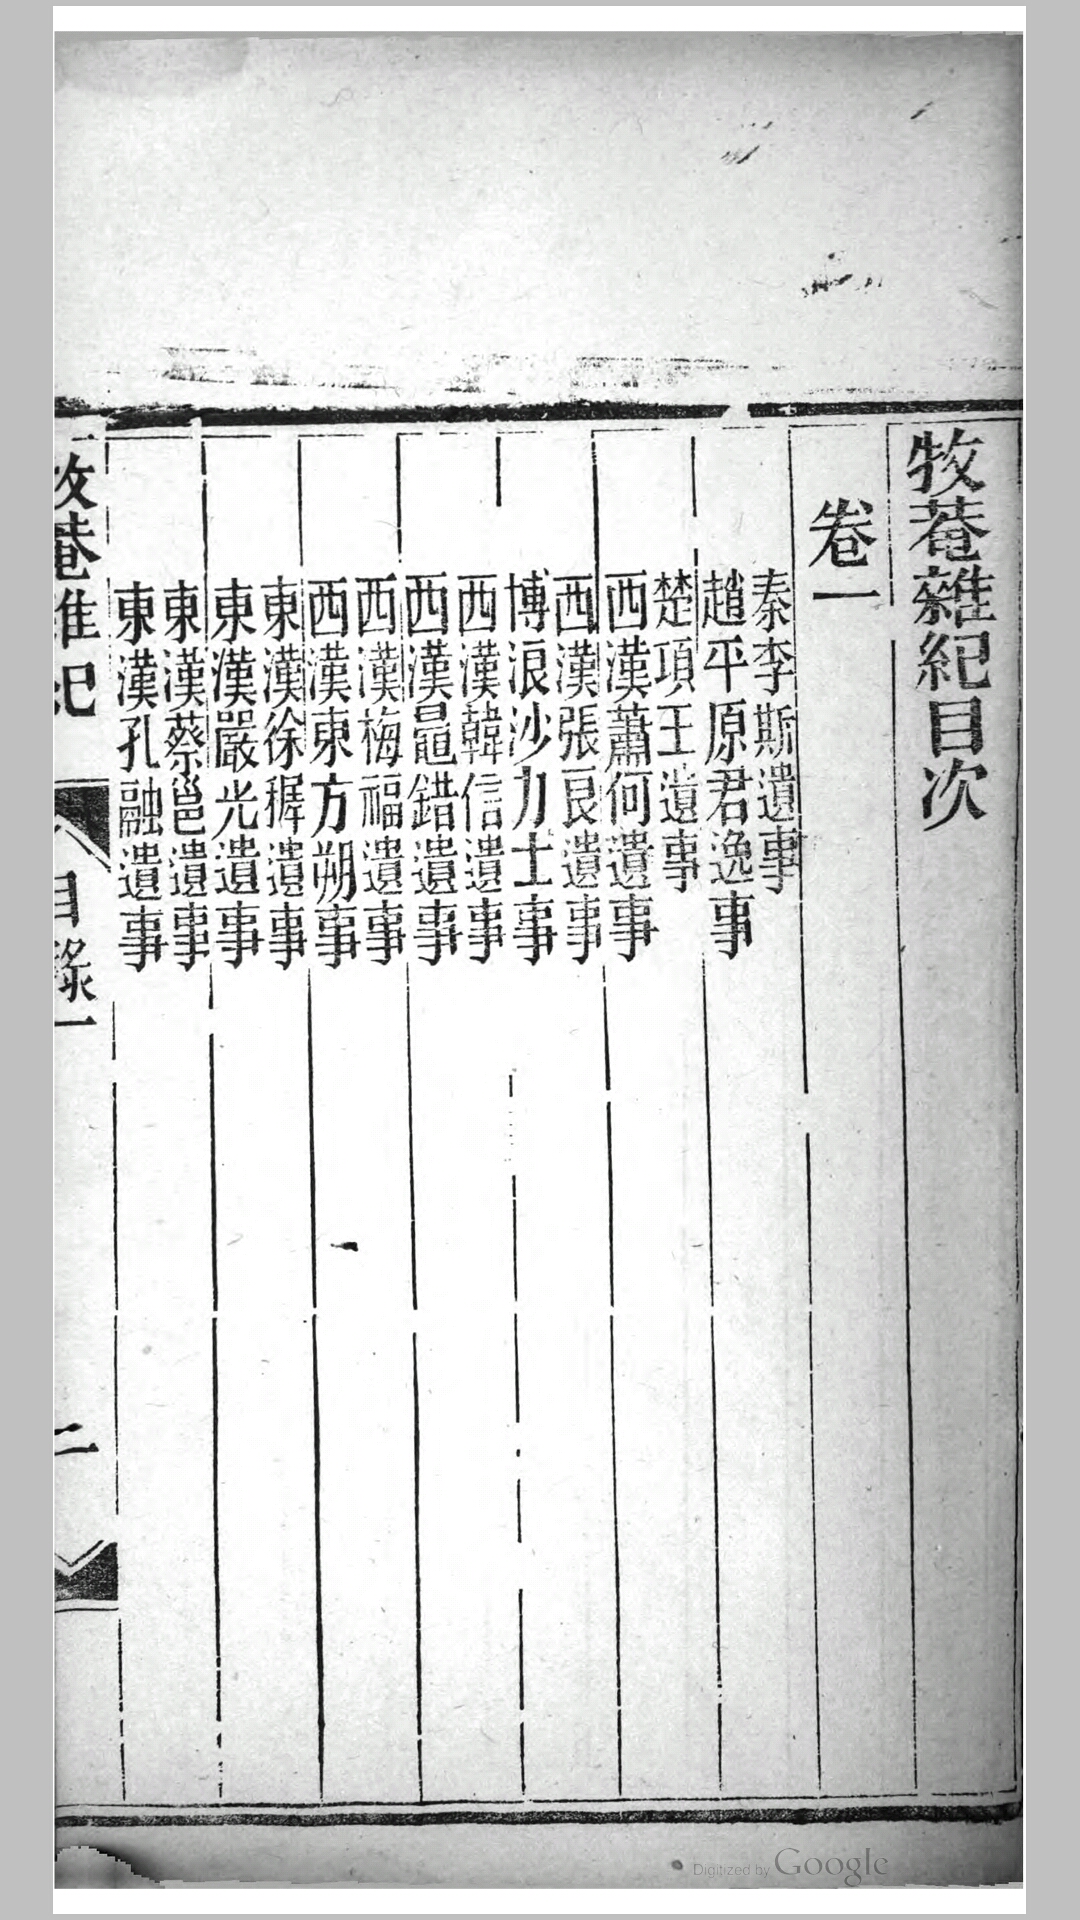 牧菴雜紀目次
卷一
秦李斯遺事
趙平原君逸事
楚項王遺事
西漢蕭何遺事
西漢張良遺事
博浪沙力士事
西漢韓信遺事
西漢鼂錯遺事
西漢梅福遺事
西漢東方朔事
東漢徐穉遺事
東漢嚴光遺事
東漢蔡邕遺事
東漢孔融遺事
牧菴雜紀
目錄一
二
Digitized by Google